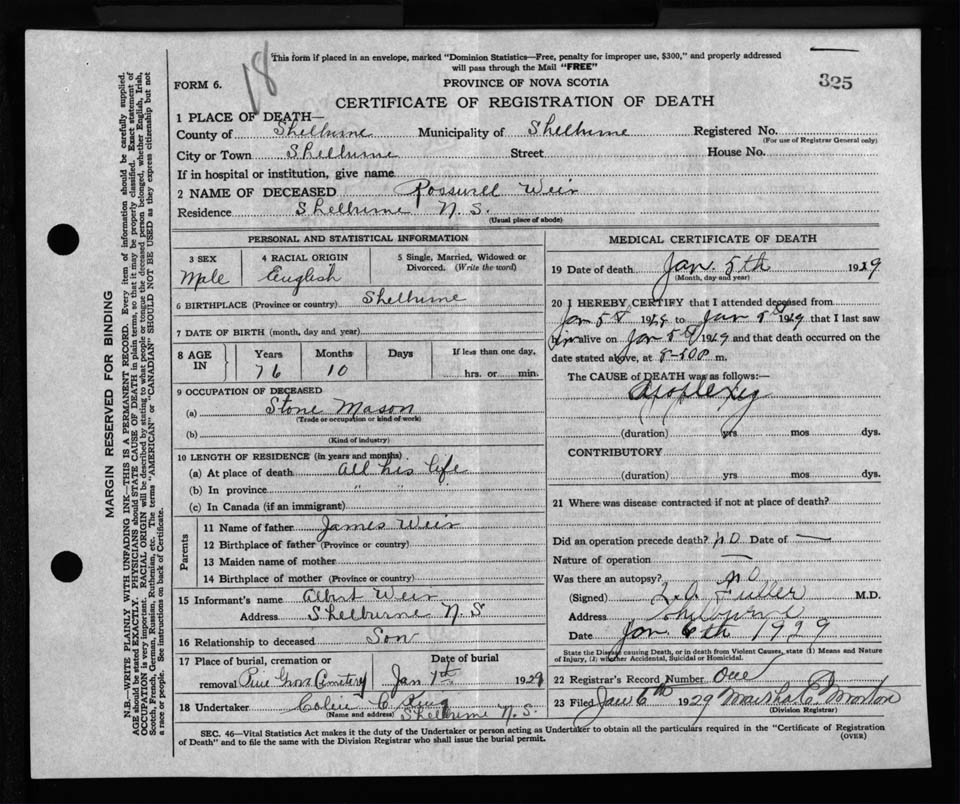 This form if placed in an envelope, marked "Dominion Statistics—Free, penalty for improper use, $300," and properly addressed
will pass through the Mail "FREE"
18
325
FORM 6.
PROVINCE OF NOVA SCOTIA
CERTIFICATE OF REGISTRATION OF DEATH
1 PLACE OF DEATH—
County of Shelburne Municipality of Shelburne Registered No.
(For use of Registrar General only)
City or Town Shelburne Street House No.
If in hospital or institution, give name
2 NAME OF DECEASED Rosswell Weir
Residence Shelburne N. S.
(Usual place of abode)
PERSONAL AND STATISTICAL INFORMATION
3 SEX Male
4 RACIAL ORIGIN English
5 Single, Married, Widowed or Divorced. (Write the word)
6 BIRTHPLACE (Province or country) Shelburne
7 DATE OF BIRTH (month, day and year)
8 AGE IN Years 76 Months 10 Days If less than one day, hrs. or min.
9 OCCUPATION OF DECEASED
(a) Stone Mason
(Trade or occupation or kind of work)
(b)
(Kind of industry)
10 LENGTH OF RESIDENCE (in years and months)
(a) At place of death all his life
(b) In province " " "
(c) In Canada (if an immigrant)
Parents
11 Name of father James Weir
12 Birthplace of father (Province or country)
13 Maiden name of mother
14 Birthplace of mother (Province or country)
15 Informant's name Albert Weir
Address Shelburne N. S
16 Relationship to deceased Son
17 Place of burial, cremation or Date of burial
removal Pine Grove Cemetery Jan 1929
18 Undertaker
(Name and address) Shelburne N. S.
MEDICAL CERTIFICATE OF DEATH
19 Date of death Jan. 5th 1929
(Month, day and year)
20 I HEREBY CERTIFY that I attended deceased from
Jan 5th 1929 to Jan 5th 1929 that I last saw
him alive on Jan 5th 1929 and that death occurred on the
date stated above, at m.
The CAUSE of DEATH was as follows:—
Apoplexy
(duration) yrs mos dys.
CONTRIBUTORY
(duration) yrs mos dys.
21 Where was disease contracted if not at place of death?
Did an operation precede death? no Date of —
Nature of operation —
Was there an autopsy? no
(Signed) Fuller M.D.
Address Shelburne
Date Jan 6th 1929
State the Disease causing Death, or in death from Violent Causes, state (1) Means and Nature
of Injury, (2) whether Accidental, Suicidal or Homicidal.
22 Registrar's Record Number One
23 Filed Jan 6th 1929 Morton
(Division Registrar)
SEC. 46—Vital Statistics Act makes it the duty of the Undertaker or person acting as Undertaker to obtain all the particulars required in the "Certificate of Registration
of Death" and to file the same with the Division Registrar who shall issue the burial permit.
(OVER)
MARGIN RESERVED FOR BINDING
N.B.—WRITE PLAINLY WITH UNFADING INK—THIS IS A PERMANENT RECORD. Every item of information should be carefully supplied.
AGE should be stated EXACTLY. PHYSICIANS should STATE CAUSE OF DEATH in plain terms, so that it may be properly classified. Exact statement of
OCCUPATION is very important. RACIAL ORIGIN will be described by stating to what people or tongue the deceased person belonged, whether English, Irish,
Scotch, French, German, Russian, Ruthenian, etc. The terms "AMERICAN" or "CANADIAN" SHOULD NOT BE USED as they express citizenship but not
a race or people. See instructions on back of Certificate.